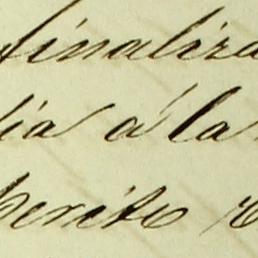 finaliza
dia á la
perito